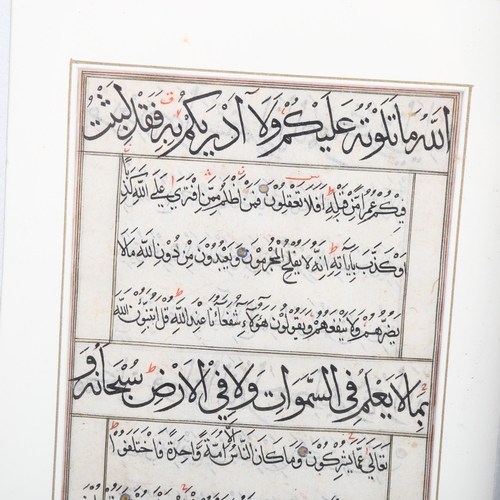 الله ما تلوته عليكم ولا أدريكم به فقد لبثت
فيكم عمرا من قبله افلا تعقلون فمن اظلم ممن افترى على الله كذبا
او كذب باياته انه لا يفلح المجرمون ويعبدون من دون الله مالا
يضرهم ولا ينفعهم ويقولون هؤلاء شفعاؤنا عند الله قل اتنبئون الله
بما لا يعلم في السموات ولا في الارض سبحانه و
تعالى عما يشركون وما كان الناس الا امة واحدة فاختلفوا